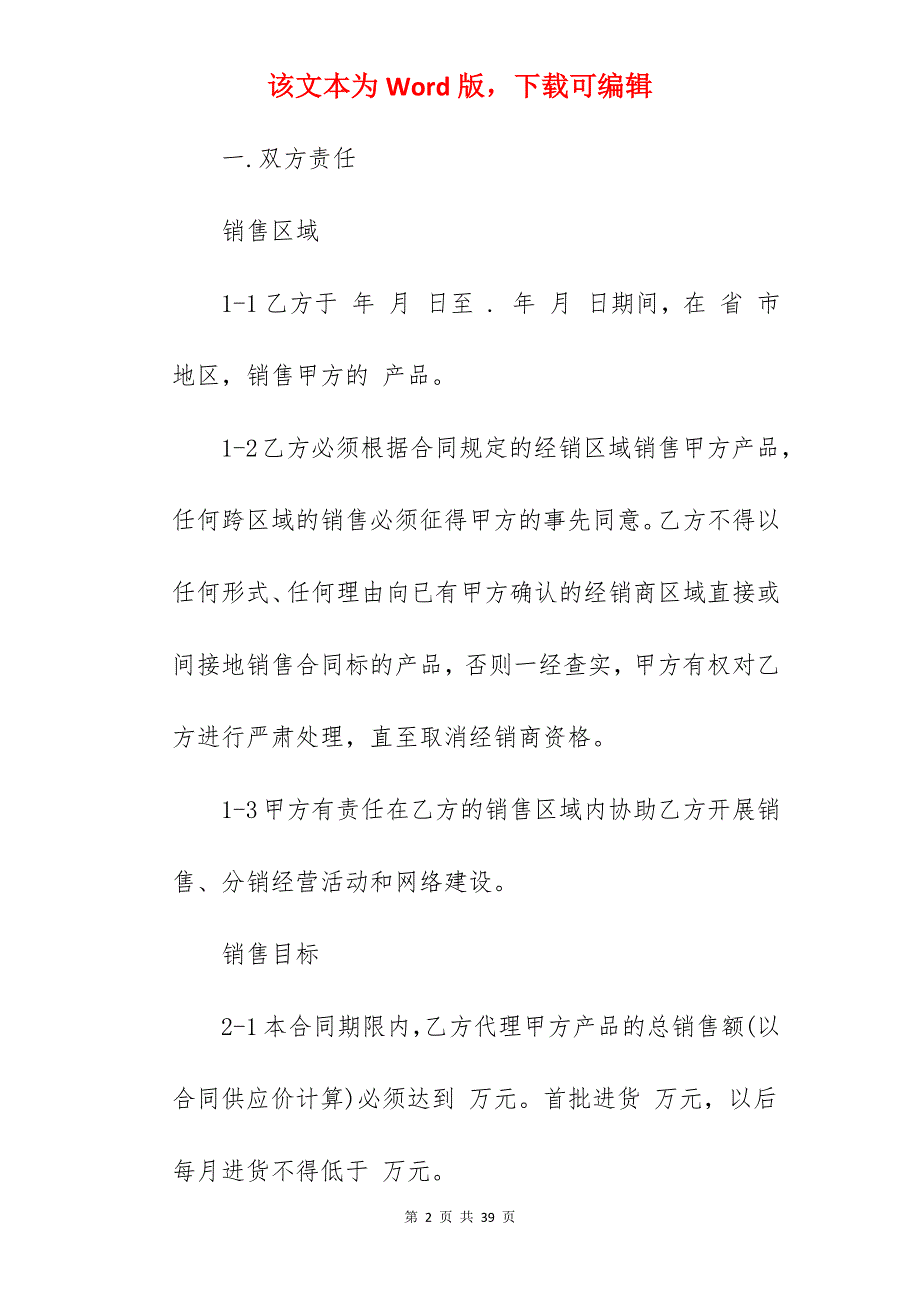 该文本为 Word 版，下载可编辑
一.双方责任
销售区域
1-1 乙方于 年 月 日至 . 年 月 日期间，在 省 市
地区，销售甲方的 产品。
1-2 乙方必须根据合同规定的经销区域销售甲方产品，
任何跨区域的销售必须征得甲方的事先同意。乙方不得以
任何形式、任何理由向已有甲方确认的经销商区域直接或
间接地销售合同标的产品，否则一经查实，甲方有权对乙
方进行严肃处理，直至取消经销商资格。
1-3 甲方有责任在乙方的销售区域内协助乙方开展销
售、分销经营活动和网络建设。
销售目标
2-1 本合同期限内,乙方代理甲方产品的总销售额(以
合同供应价计算)必须达到 万元。首批进货 万元，以后
每月进货不得低于 万元。
第 2 页 共 39 页